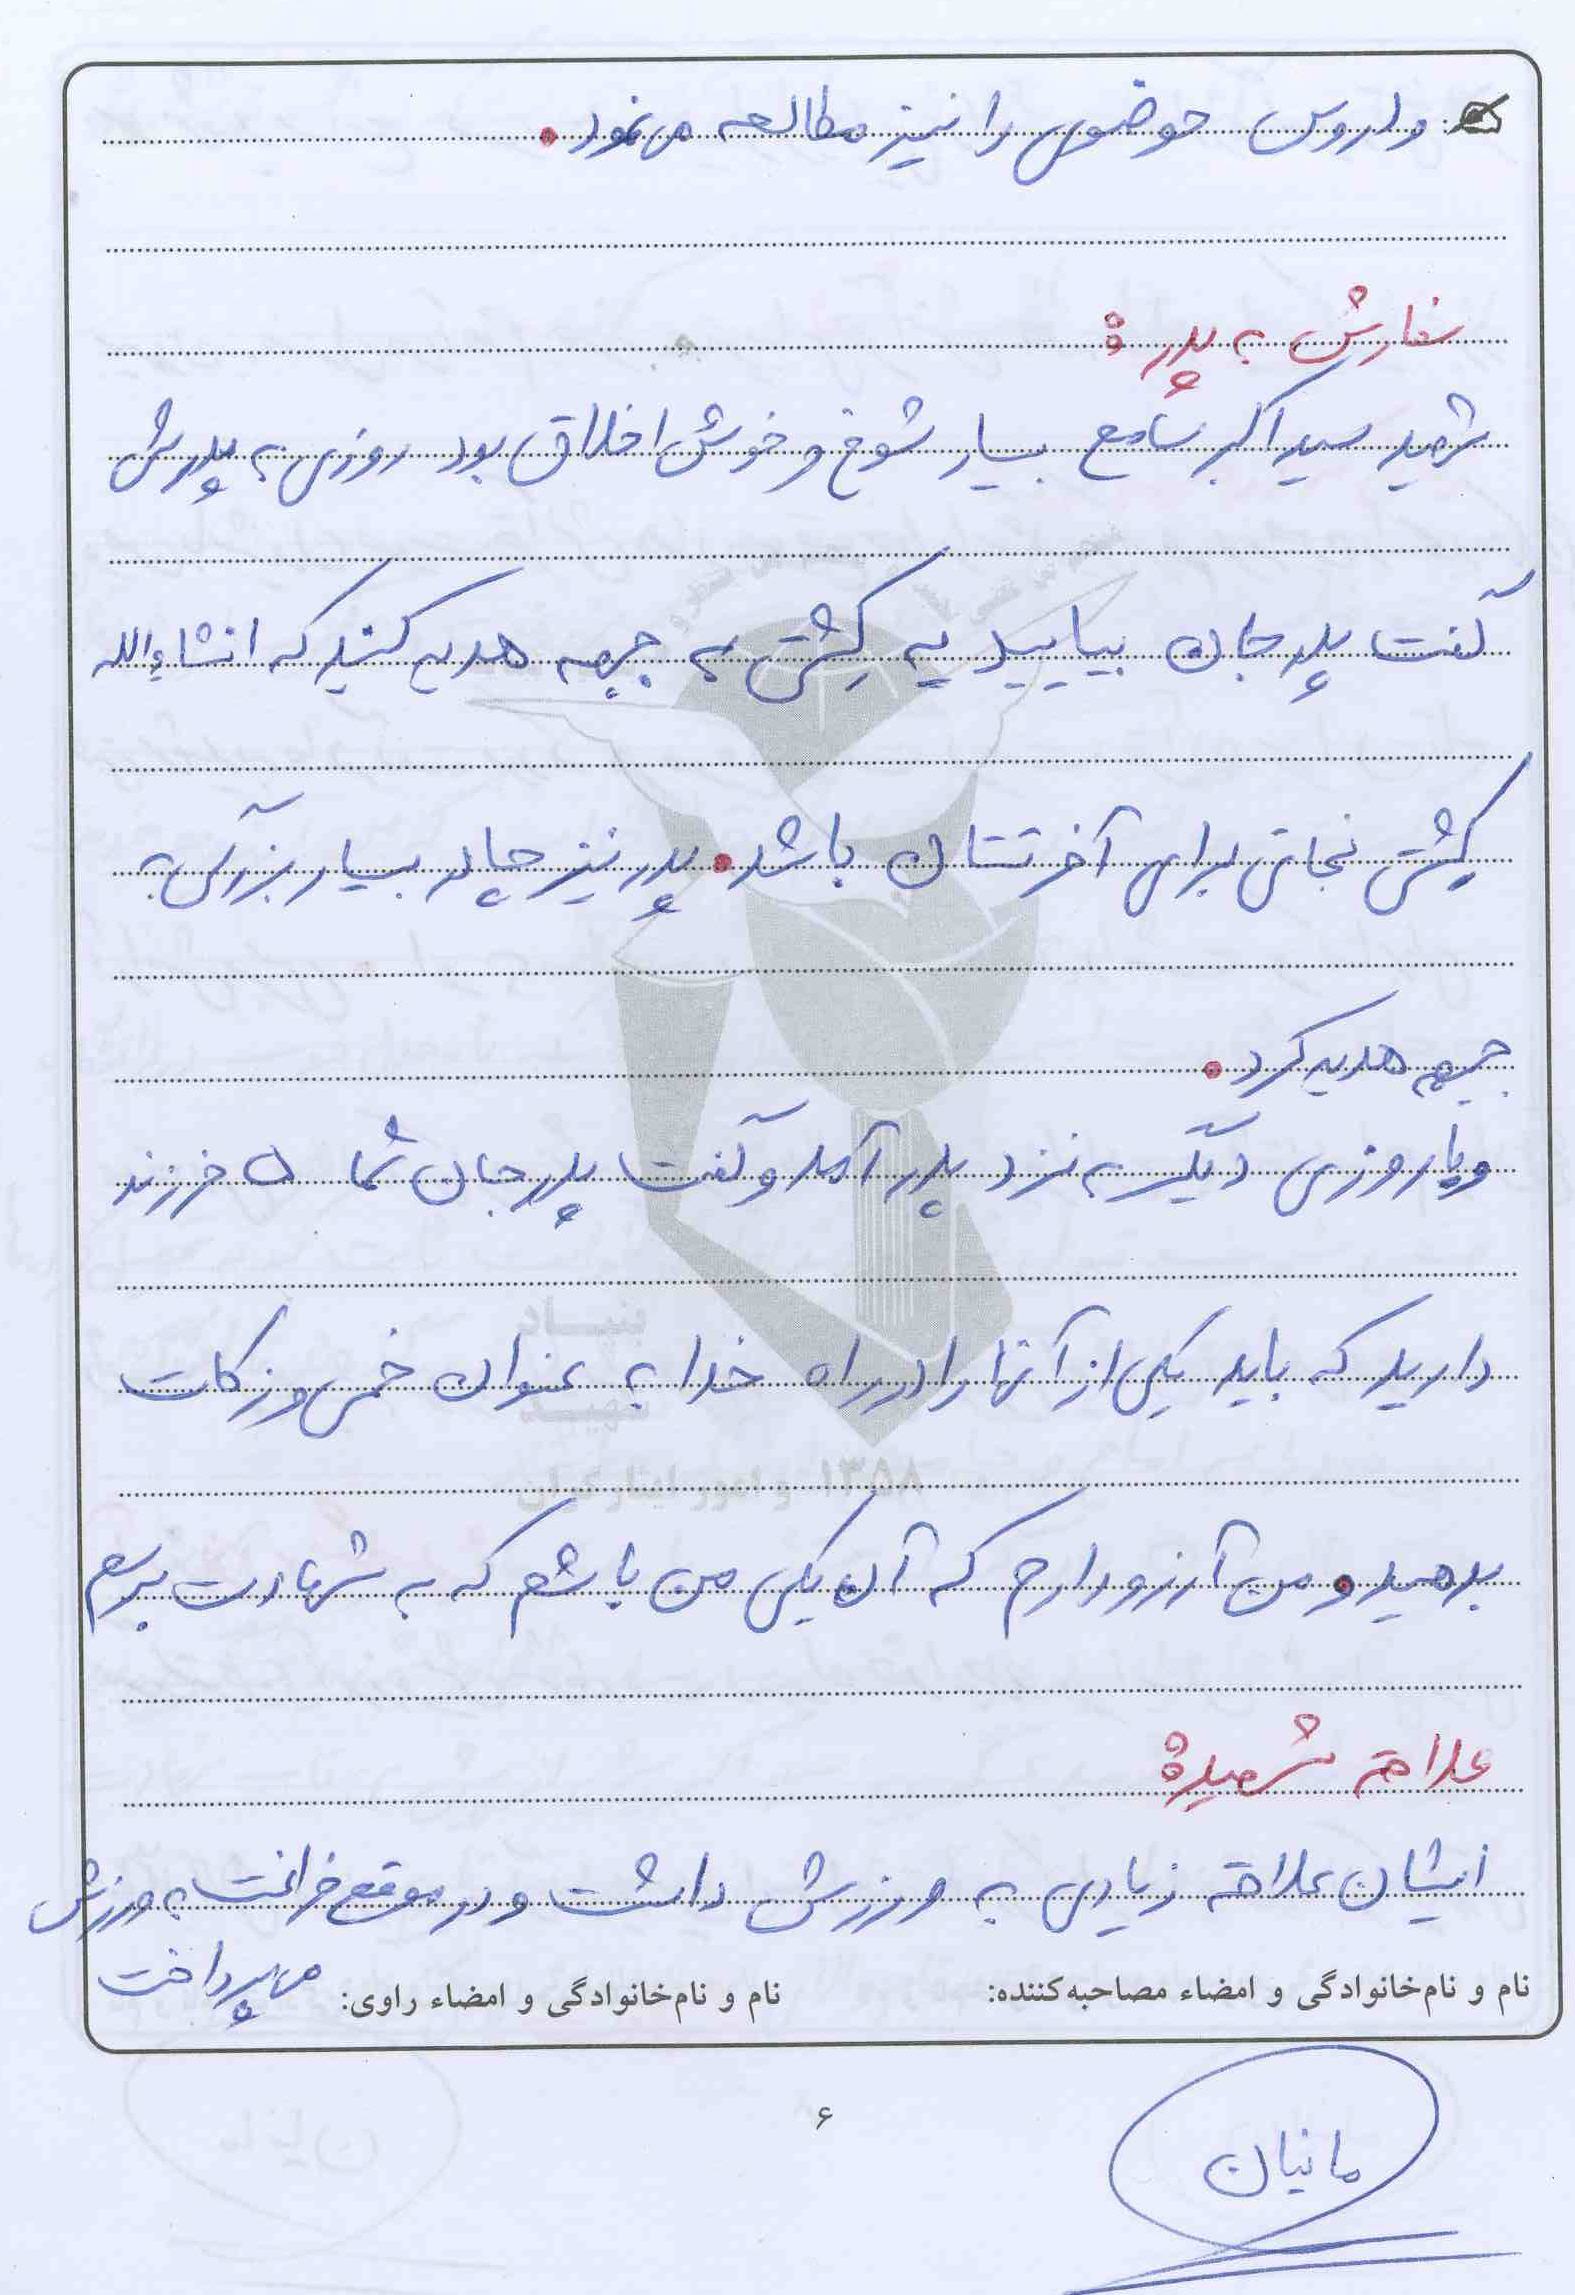 و دروس حوضوی را نیز مطالعه می‌نمود.
سفارش به پدر:
شهید سید اکبر سامع بسیار شوخ و خوش اخلاق بود روزی به پدرش
گفت پدر جان بیایید یه کشتی به جبهه هدیه کنید که انشاءالله
کشتی نجاتی برای آخرتتان باشد. پدر نیز چادر بسیار بزرگی به
جبهه هدیه کرد.
و یا روزی دیگر به نزد پدر آمد و گفت پدر جان شما ۵ فرزند
دارید که باید یکی از آنها را در راه خدا به عنوان خمس و زکات
بدهید و من آرزو دارم که آن یکی من باشم که به شهادت برسم
علاقه شهید:
ایشان علاقه زیادی به ورزش داشت و در موقع فراغت به ورزش
می پرداخت
نام و نام‌خانوادگی و امضاء مصاحبه‌کننده: نام و نام‌خانوادگی و امضاء راوی:
۶
مانیان
بنیاد
شهید
و امور ایثارگران ۱۳۵۸